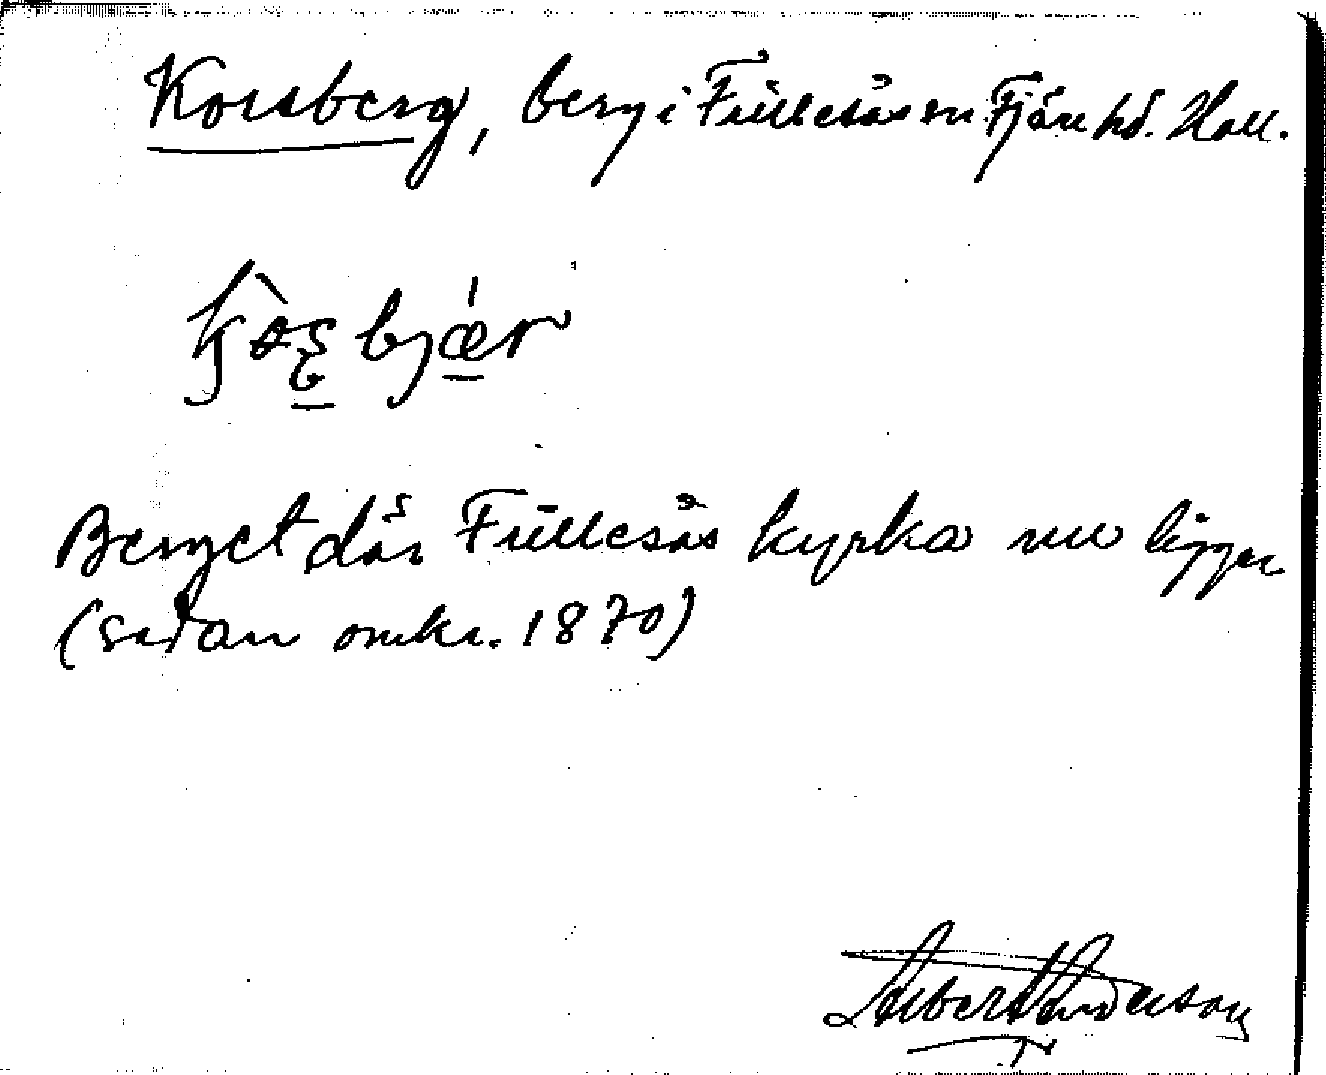 Korsberg, berg i Fjällesås sn Fjäre hd. Hall.
Berget där Fjällesås kyrka nu ligger
(sedan omkr. 1870)
Albert Anderson